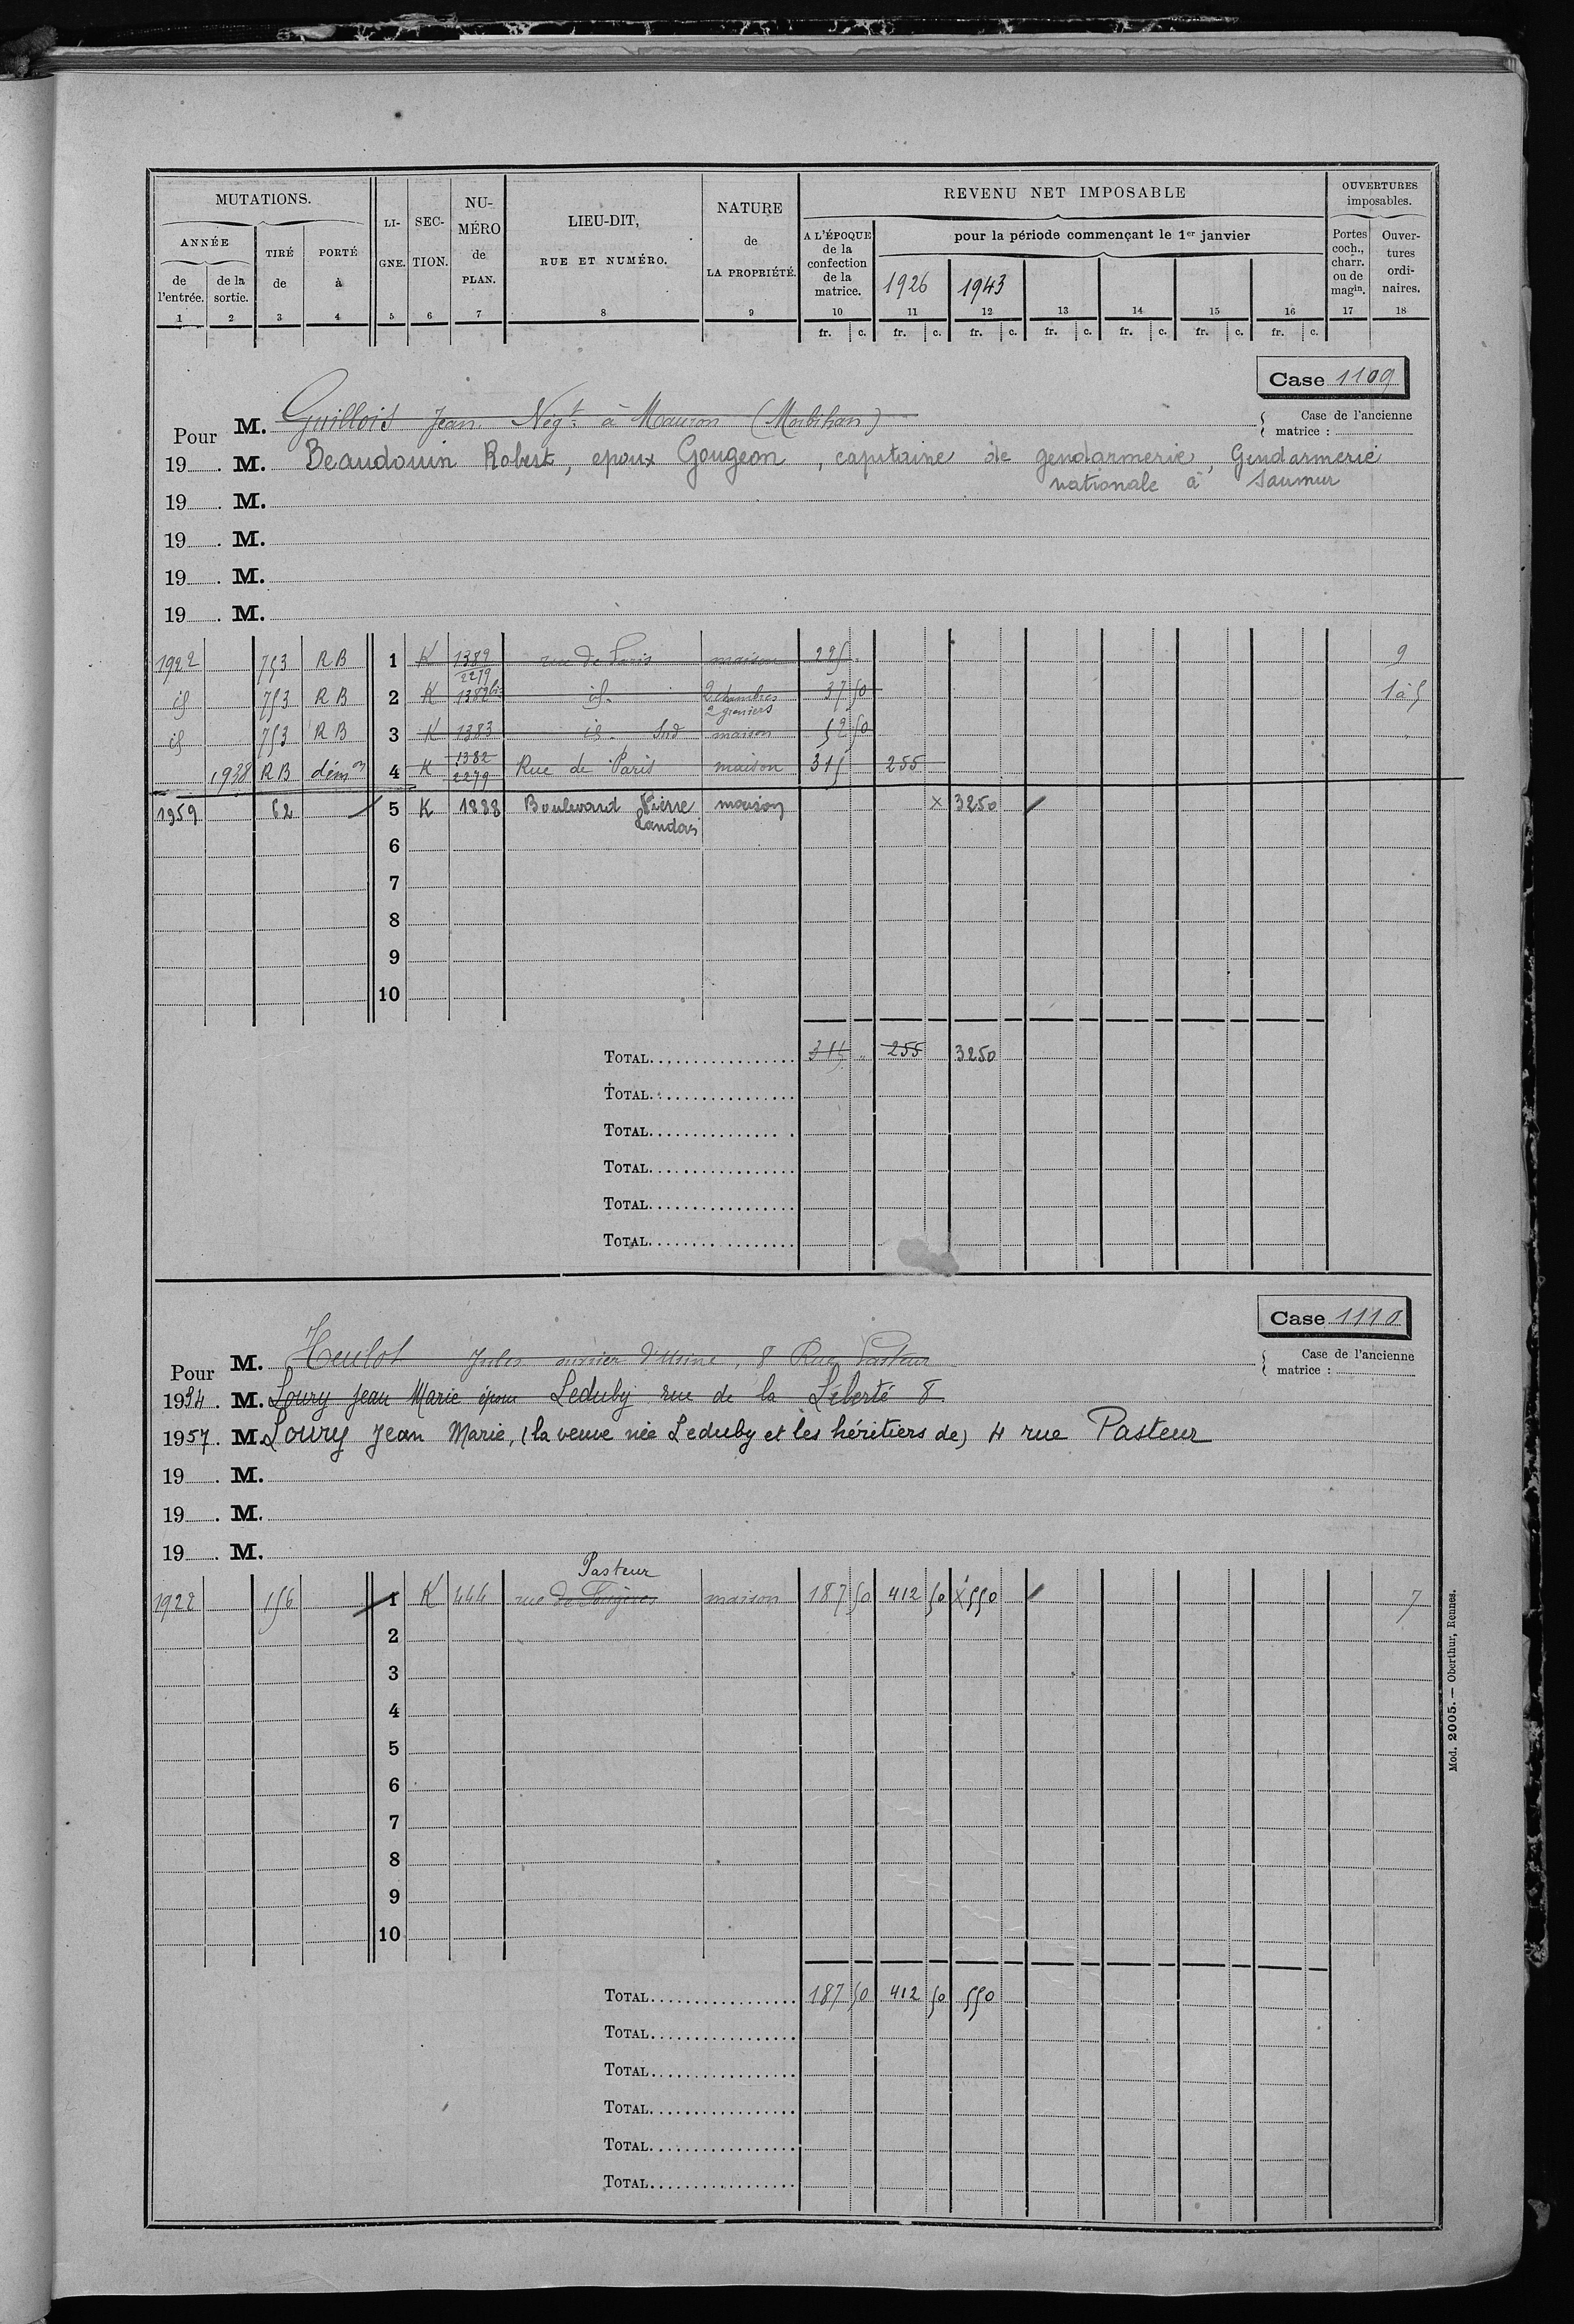 MUTATIONS.
ANNÉE
de l'entrée.
de la sortie.
TIRÉ de
PORTÉ à
LI-GNE.
SEC-TION.
NU-MÉRO de PLAN.
LIEU-DIT, RUE ET NUMÉRO.
NATURE de LA PROPRIÉTÉ.
REVENU NET IMPOSABLE
A L'ÉPOQUE de la confection de la matrice.
pour la période commençant le 1er janvier
1926 1943
OUVERTURES imposables.
Portes coch., charr. ou de magin.
Ouver-tures ordi-naires.
1 2 3 4 5 6 7 8 9 10 11 12 13 14 15 16 17 18
fr. c. fr. c. fr. c. fr. c. fr. c. fr. c. fr. c.
Case 1109
Pour M. Guillois Jean Négt à Mauron (Morbihan)
Case de l'ancienne matrice :
19 . M. Beaudouin Robert, epoux Gougeon, capitaine de gendarmerie, Gendarmerie
nationale à Saumur
19 . M.
19 . M.
19 . M.
19 . M.
1922 753 RB 1 K 1382 2279 rue de Paris maison 225 9
id 753 RB 2 K 1382bis id. 2 chambres 2 greniers 37 50 1 à 5
id 753 RB 3 K 1383 id. Sud maison 52 50
1938 RB démon 4 K 1382 2279 Rue de Paris maison 315 255
1959 62 5 K 1888 Boulevard Pierre Landais maison x 3250
6
7
8
9
10
TOTAL 315 " 255 3250
TOTAL
TOTAL
TOTAL
TOTAL
TOTAL
Case 1110
Pour M. Heulot Jules ouvrier d'usine, 8 Rue Pasteur
Case de l'ancienne matrice :
1934 . M. Loury Jean Marie époux Leduby rue de la Liberté 8
1957 . M. Loury Jean Marie, (la veuve née Leduby et les héritiers de) 4 rue Pasteur
19 . M.
19 . M.
19 . M.
Pasteur
1922 156 1 K 444 rue de Fougères maison 187 50 412 50 x 550 7
2
3
4
5
6
7
8
9
10
TOTAL 187 50 412 50 550
TOTAL
TOTAL
TOTAL
TOTAL
TOTAL
Mod. 2005. — Oberthur, Rennes.